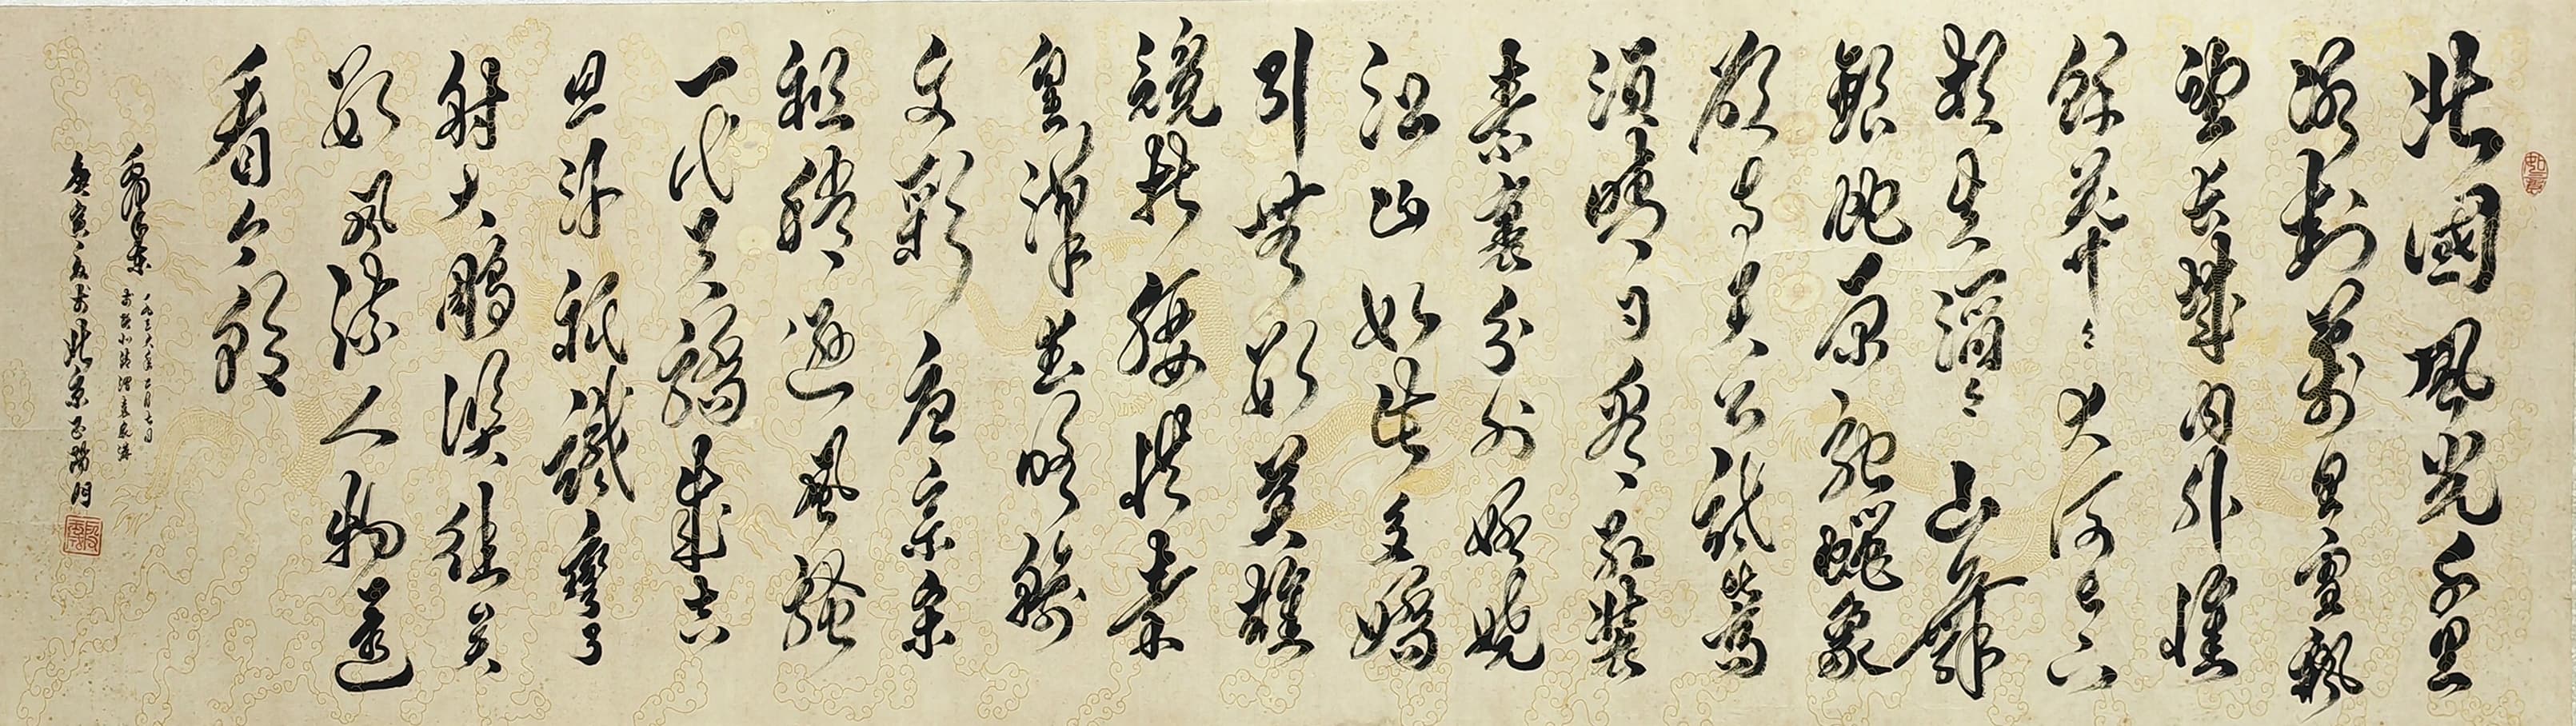 北國風光千里
冰封萬里雪飄
望長城內外惟
餘莽々大河上下
頓失滔々山舞
銀蛇原馳蠟象
欲与天公試比高
須晴日看紅裝
素裹分外妖嬈
江山如此多嬌
引無數英雄
競折腰惜秦
皇漢武略輸
文彩唐宗宋
祖稍遜風騷
一代天驕成吉
思汗祇識彎弓
射大鵰俱往矣
數風流人物還
看今朝
毛澤東
一九三六年二月七日
於陝北清澗袁家溝
於北京